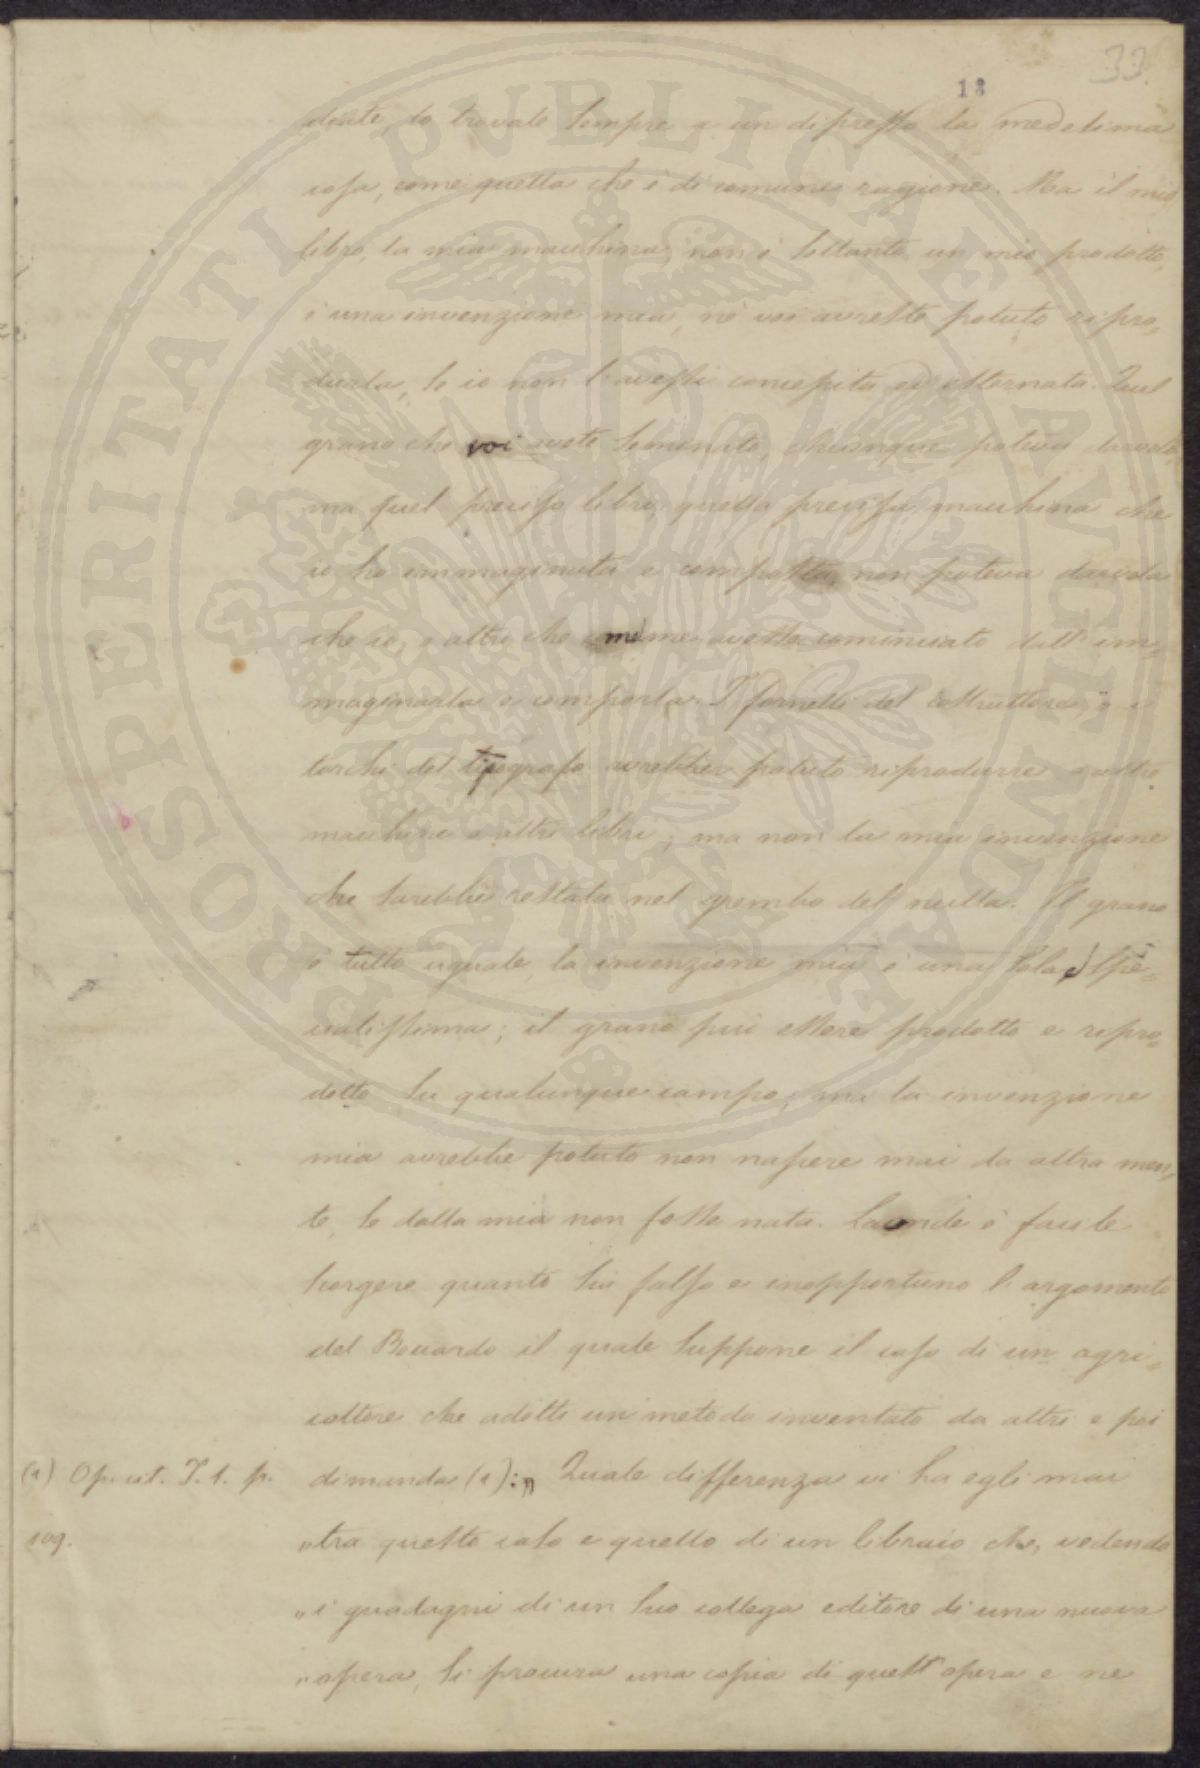 33.
18
dente, lo trovate sempre a un dipresso la medesima
cosa, come quella che è di comune ragione. Ma il mio
libro, la mia macchina, non è soltanto un mio prodotto,
è una invenzione mia, nè voi avreste potuto ripro=
durla, se io non l'avessi concepita ed esternata. Quel
grano che voi avete seminato, chiunque poteva darvelo,
ma quel preciso libro, quella precisa macchina che
io ho immaginata e composta, non poteva darvela
che io, o altri che me avesse cominciato dall'im=
maginarla e comporla. I fornelli del costruttore, o i
torchi del tipografo avrebber potuto riprodurre
macchine o altri libri; ma non la mia invenzione
che sarebbe restata nel grembo del nulla. Il grano
è tutto uguale, la invenzione mia è una sola, spe=
cialissima; il grano può essere prodotto e ripro=
dotto su qualunque campo; ma la invenzione
mia avrebbe potuto non nascere mai da altra men=
te, se dalla mia non fosse nata. Laonde è facile
scorgere quanto sia falso e inopportuno l'argomento
del Boccardo il quale suppone il caso di un agri=
coltore che adotti un metodo inventato da altri e poi
dimanda (1): „ Quale differenza vi ha egli mai
(1) Op. cit. T. 1. p.
109.
„ tra questo caso e quello di un libraio che, vedendo
„ i guadagni di un suo collega editore di una nuova
„ opera, si procura una copia di quell'opera e ne
PROSPERITATI PVBLICAE AVGENDAE